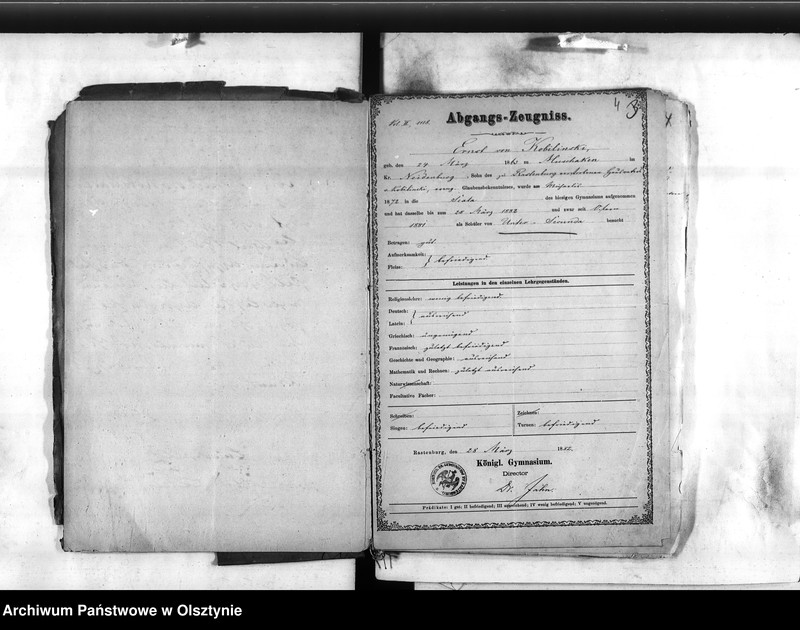 4
Abgangs-Zeugniss.
Ernst von Kobilinski,
geb. den 29. März 1865 in Muschaken im
Kr. Neidenburg, Sohn des zu Rastenburg
v. Kobilinski, evang. Glaubensbekenntnisses, wurde am Michaelis
1872 in die des hiesigen Gymnasiums aufgenommen
und hat dasselbe bis zum 28 März 1882 und zwar seit Ostern
1881 als Schüler von Unter-Secunda besucht
Betragen: gut.
Aufmerksamkeit:
Fleiss: befriedigend
Leistungen in den einzelnen Lehrgegenständen.
Religionslehre: wenig befriedigend
Deutsch:
Latein: ausreichend
Griechisch: ungenügend
Französisch: zuletzt befriedigend
Geschichte und Geographie: ausreichend
Mathematik und Rechnen: zuletzt ausreichend
Naturwissenschaft:
Facultative Fächer:
Schreiben: Zeichnen:
Singen: befriedigend Turnen: befriedigend
Rastenburg, den 28 März 1882.
Königl. Gymnasium.
Director
Dr. Jahn.
Prädikate: I gut; II befriedigend; III ausreichend; IV wenig befriedigend; V ungenügend.
Archiwum Państwowe w Olsztynie